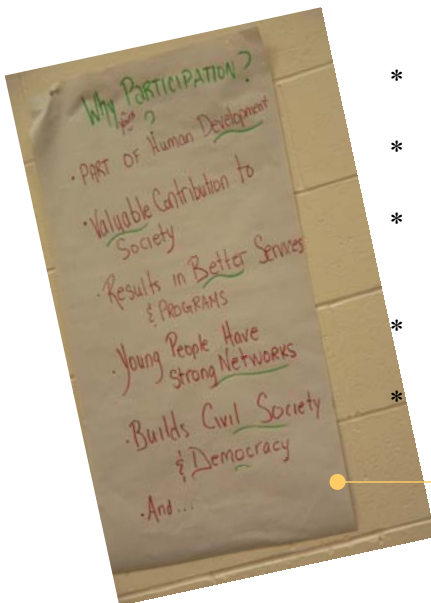 Why PARTICIPATION?
for ?
• PART OF Human Development
• Valuable Contribution to
Society
• Results in Better Services
& PROGRAMS
• Young People Have
Strong NETWORKS
• Builds Civil Society
& Democracy
• And...
*
*
*
*
*